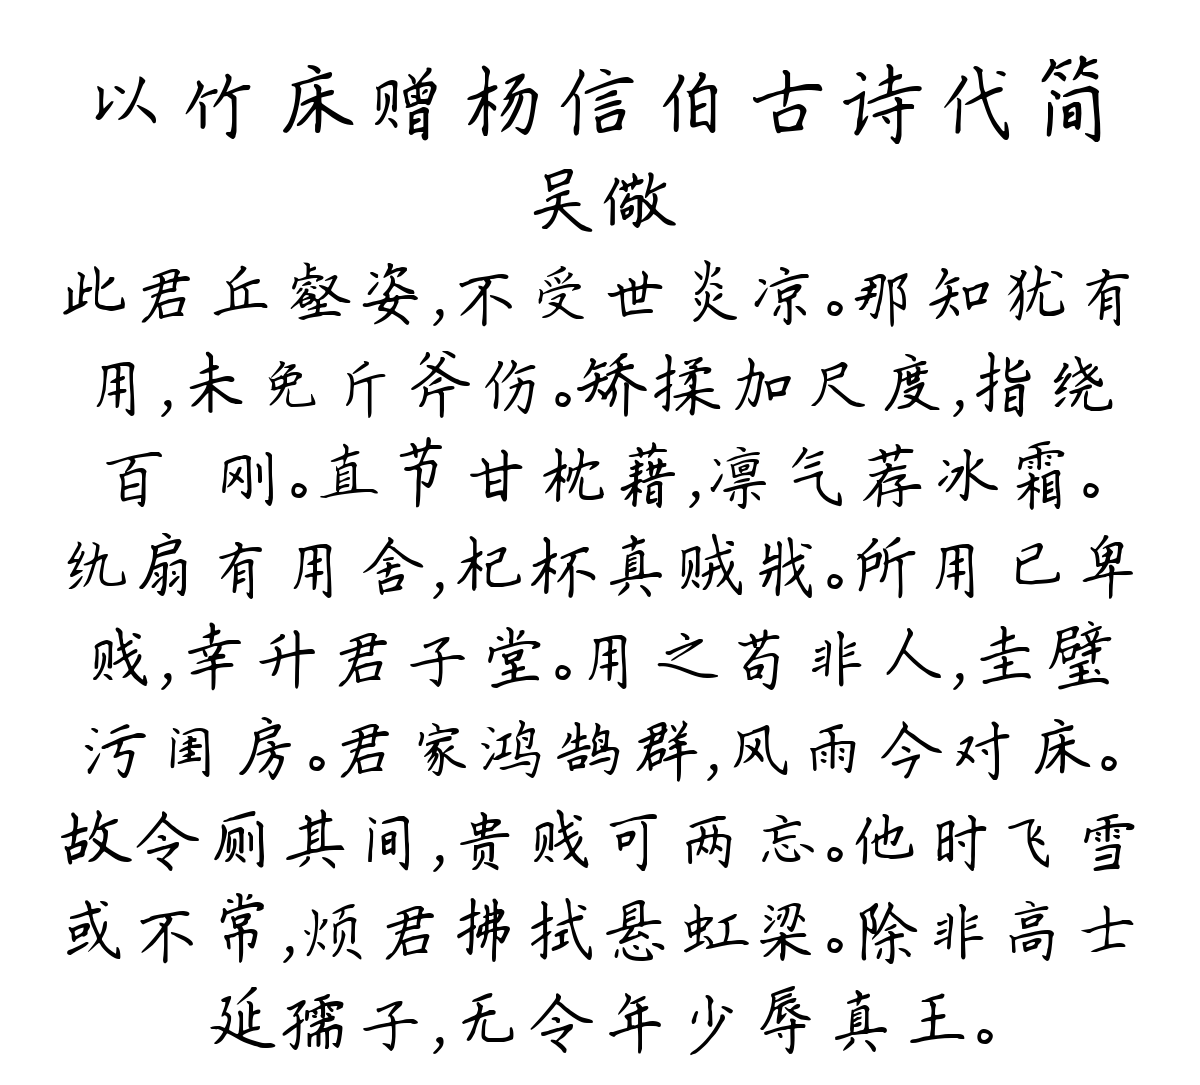 以竹床赠杨信伯古诗代简
吴儆
此君丘壑姿,不受世炎凉。那知犹有
用,未免斤斧伤。矫揉加尺度,指绕
百 刚。直节甘枕藉,凛气荐冰霜。
纨扇有用舍,杞杯真贼戕。所用已卑
贱,幸升君子堂。用之苟非人,圭璧
污闺房。君家鸿鹄群,风雨今对床。
故令厕其间,贵贱可两忘。他时飞雪
或不常,烦君拂拭悬虹梁。除非高士
延孺子,无令年少辱真王。